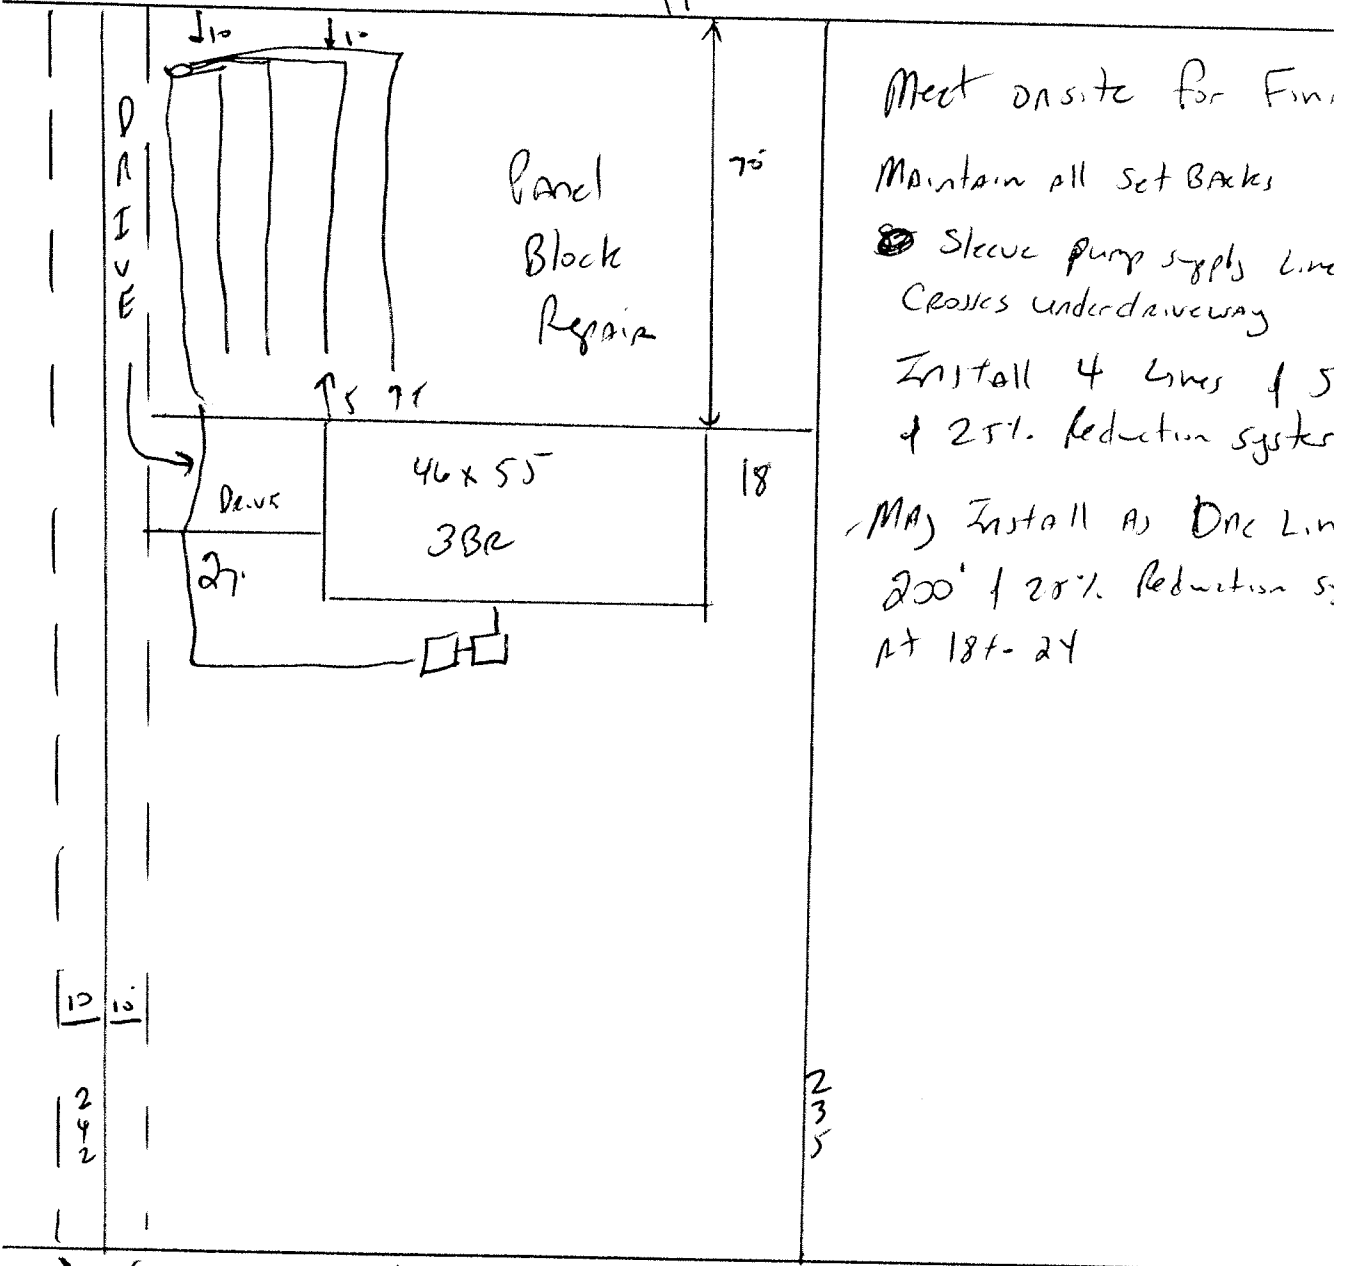 ↓10 ↓10
DRIVE
Panel
Block
Repair
70'
↑5 ↑5
46 x 55
3BR
18
Drive
27.
10 10'
242
235
Meet onsite for Fin
Maintain all Set Backs
Sleeve pump supply Line
Crosses under driveway
Install 4 Lines of 5
of 25% Reduction system
May Install As One Lin
200' of 25% Reduction sy
At 18+- 24